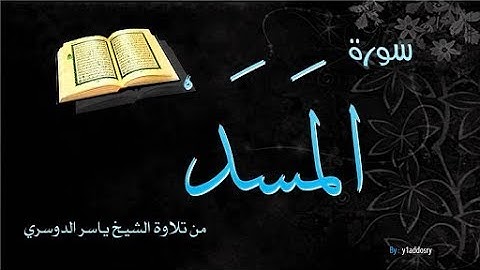 سورة
المَسَدَ
من تلاوة الشيخ ياسر الدوسري
By : y1addosry